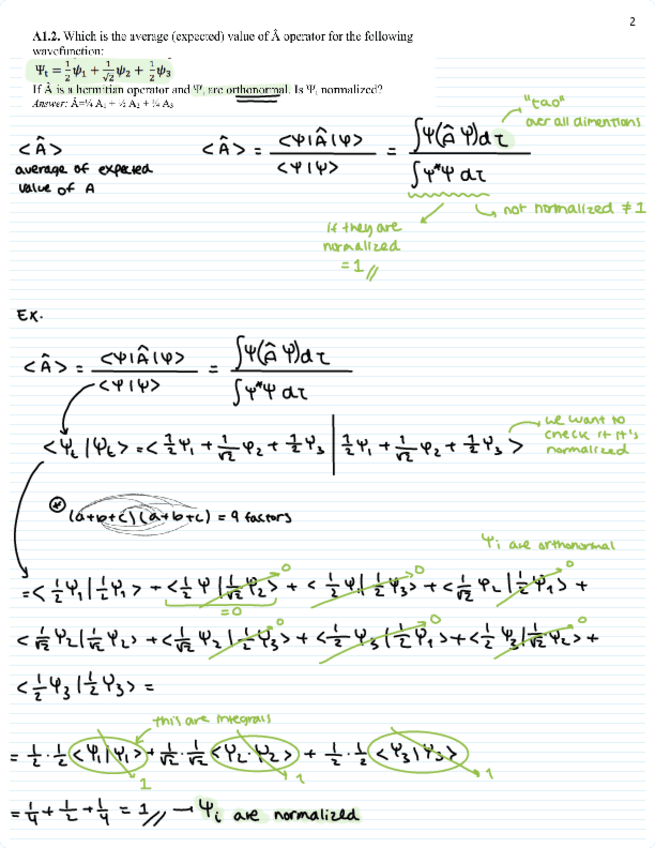 2
A1.2. Which is the average (expected) value of Â operator for the following
wavefunction:
Ψt = 1/2 ψ1 + 1/√2 ψ2 + 1/2 ψ3
If Â is a hermitian operator and Ψi are orthonormal. Is Ψt normalized?
Answer: Â=¼ A1 + ½ A2 + ¼ A3
"tao"
over all dimentions
<Â>
average of expected
value of A
<Â> = <Ψ|Â|Ψ> / <Ψ|Ψ> = ∫Ψ(Â Ψ)dτ / ∫Ψ*Ψ dτ
not normalized ≠ 1
If they are
normalized
= 1 //
Ex.
<Â> = <Ψ|Â|Ψ> / <Ψ|Ψ> = ∫Ψ(Â Ψ)dτ / ∫Ψ*Ψ dτ
we want to
check if it's
normalized
<Ψt|Ψt> = <1/2 Ψ1 + 1/√2 Ψ2 + 1/2 Ψ3 | 1/2 Ψ1 + 1/√2 Ψ2 + 1/2 Ψ3>
* (a+b+c)(a+b+c) = 9 factors
Ψi are orthonormal
= <1/2 Ψ1|1/2 Ψ1> + <1/2 Ψ|1/√2 Ψ2> 0 + <1/2 Ψ|1/2 Ψ3> 0 + <1/√2 Ψ2|1/2 Ψ1> 0 +
=0
<1/√2 Ψ2|1/√2 Ψ2> + <1/√2 Ψ2|1/2 Ψ3> 0 + <1/2 Ψ3|1/2 Ψ1> 0 + <1/2 Ψ3|1/√2 Ψ2> 0 +
<1/2 Ψ3|1/2 Ψ3> =
this are integrals
= 1/2 · 1/2 <Ψ1|Ψ1> + 1/√2 · 1/√2 <Ψ2·Ψ2> + 1/2 · 1/2 <Ψ3|Ψ3>
1 1 1
= 1/4 + 1/2 + 1/4 = 1 // → Ψi are normalized